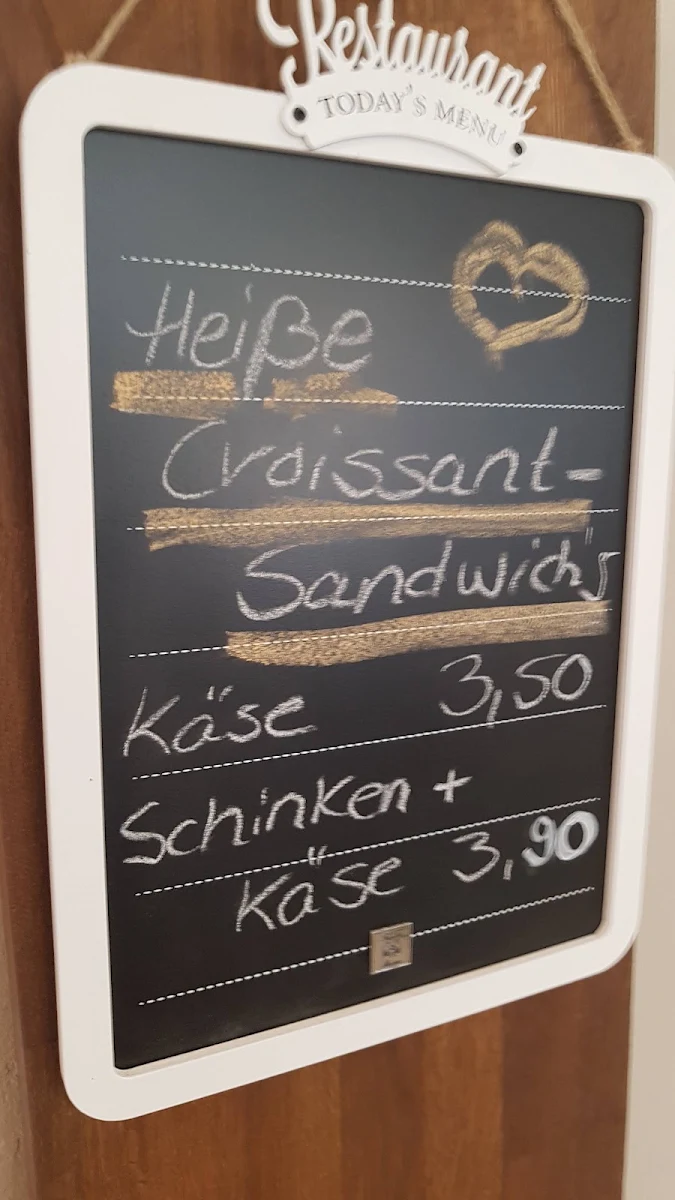 Restaurant
TODAY'S MENU
Heiße
Croissant-
Sandwich's
Käse 3,50
Schinken +
Käse 3,90